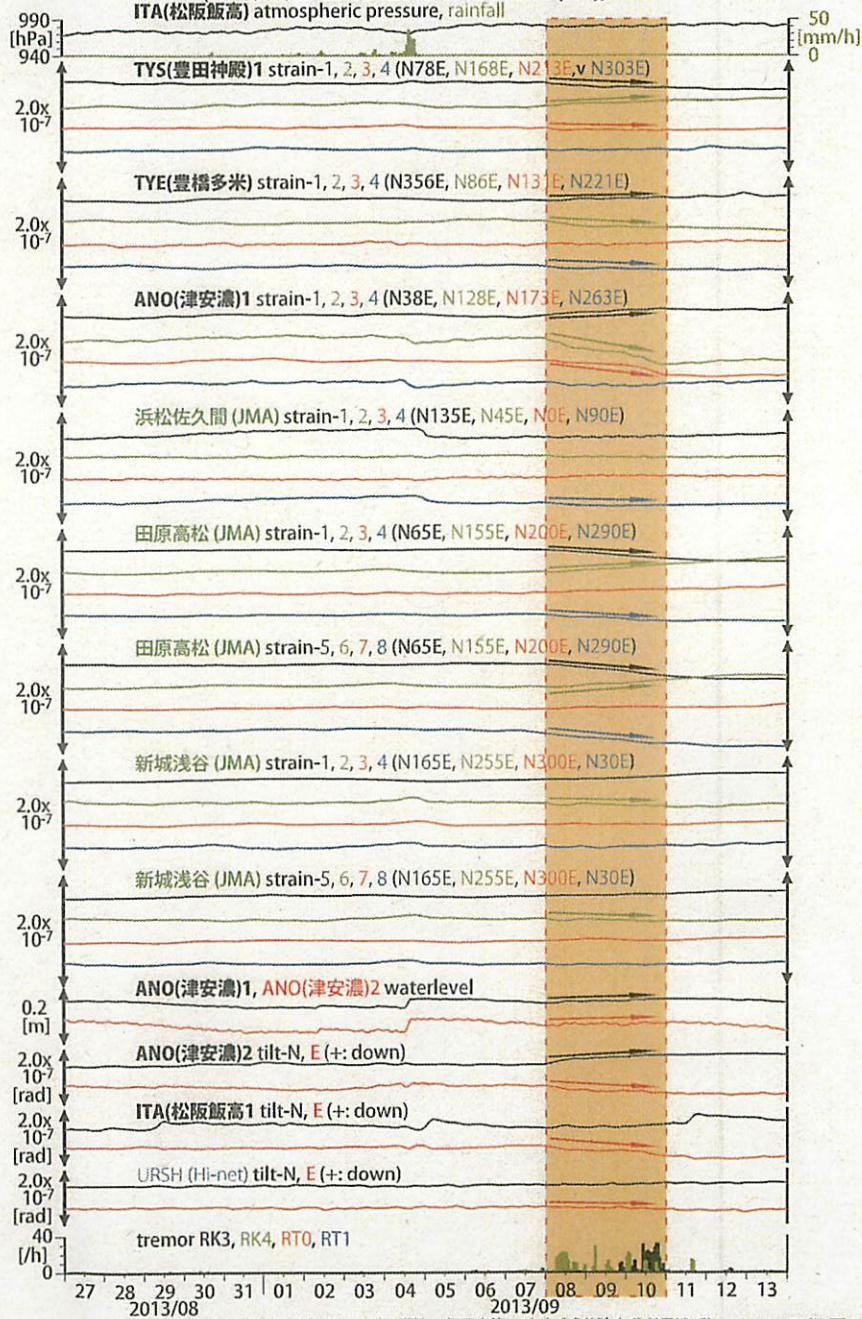 ITA(松阪飯高) atmospheric pressure, rainfall
990
[hPa]
940
50
[mm/h]
0
TYS(豊田神殿)1 strain-1, 2, 3, 4 (N78E, N168E, N213E,v N303E)
2.0x
10-7
TYE(豊橋多米) strain-1, 2, 3, 4 (N356E, N86E, N131E, N221E)
2.0x
10-7
ANO(津安濃)1 strain-1, 2, 3, 4 (N38E, N128E, N173E, N263E)
2.0x
10-7
浜松佐久間 (JMA) strain-1, 2, 3, 4 (N135E, N45E, N0E, N90E)
2.0x
10-7
田原高松 (JMA) strain-1, 2, 3, 4 (N65E, N155E, N200E, N290E)
2.0x
10-7
田原高松 (JMA) strain-5, 6, 7, 8 (N65E, N155E, N200E, N290E)
2.0x
10-7
新城浅谷 (JMA) strain-1, 2, 3, 4 (N165E, N255E, N300E, N30E)
2.0x
10-7
新城浅谷 (JMA) strain-5, 6, 7, 8 (N165E, N255E, N300E, N30E)
2.0x
10-7
ANO(津安濃)1, ANO(津安濃)2 waterlevel
0.2
[m]
ANO(津安濃)2 tilt-N, E (+: down)
2.0x
10-7
[rad]
ITA(松阪飯高1 tilt-N, E (+: down)
2.0x
10-7
[rad]
URSH (Hi-net) tilt-N, E (+: down)
2.0x
10-7
[rad]
tremor RK3, RK4, RT0, RT1
40
[/h]
0
27 28 29 30 31 01 02 03 04 05 06 07 08 09 10 11 12 13
2013/08 2013/09